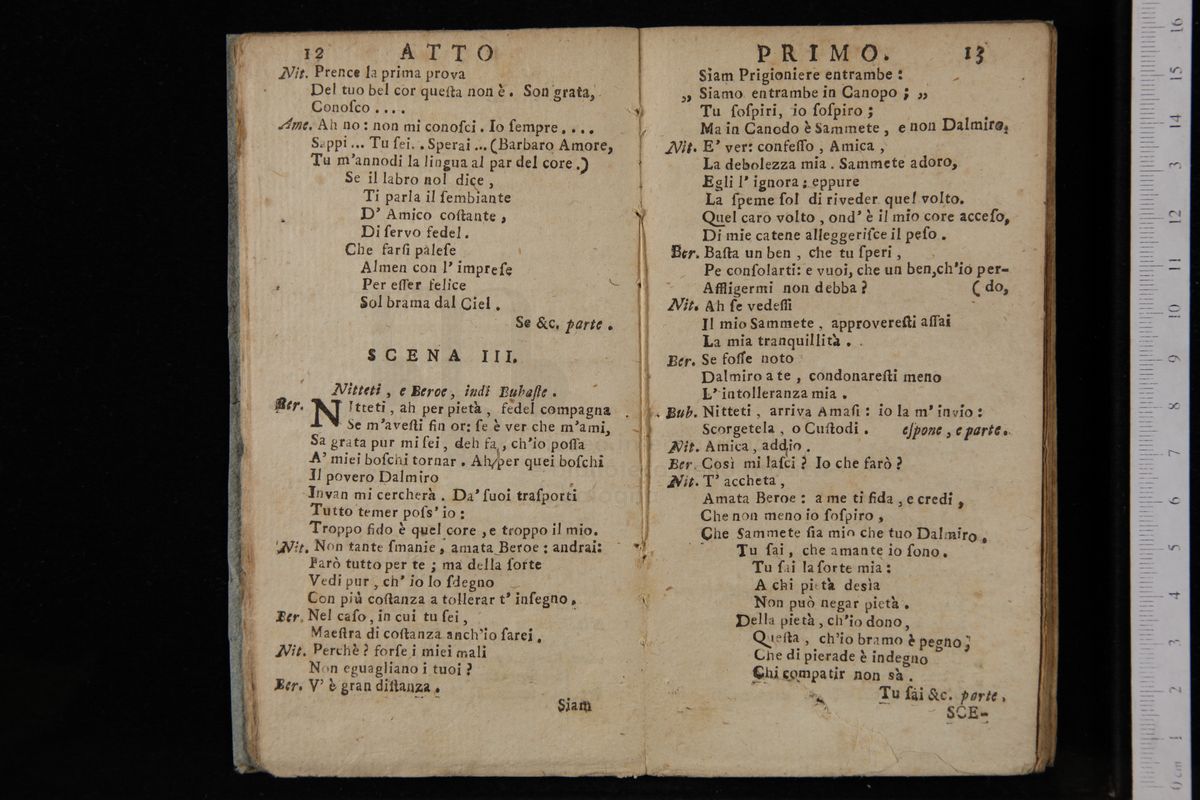 12 ATTO
Nit. Prence la prima prova
Del tuo bel cor queſta non è. Son grata,
Conoſco ....
Ame. Ah no: non mi conoſci. Io ſempre....
Sappi... Tu ſei.. Sperai... (Barbaro Amore,
Tu m'annodi la lingua al par del core.)
Se il labro nol dice,
Ti parla il ſembiante
D' Amico coſtante,
Di ſervo fedel.
Che farſi paleſe
Almen con l' impreſe
Per eſſer felice
Sol brama dal Ciel.
Se &c. parte.
SCENA III.
Nitteti, e Beroe, indi Bubaſte.
Ber. NItteti, ah per pietà, fedel compagna
Se m'aveſti fin or: ſe è ver che m'ami,
Sa grata pur mi ſei, deh fa, ch'io poſſa
A' miei boſchi tornar. Ah per quei boſchi
Il povero Dalmiro
Invan mi cercherà. Da' ſuoi traſporti
Tutto temer poſs' io:
Troppo fido è quel core, e troppo il mio.
Nit. Non tante ſmanie, amata Beroe: andrai:
Farò tutto per te; ma della ſorte
Vedi pur, ch' io lo ſdegno
Con più coſtanza a tollerar t' inſegno.
Ber. Nel caſo, in cui tu ſei,
Maeſtra di coſtanza anch'io ſarei.
Nit. Perchè? forſe i miei mali
Non eguagliano i tuoi?
Ber. V' è gran diſtanza.
Siam
PRIMO. 13
Siam Prigioniere entrambe:
„ Siamo entrambe in Canopo; „
Tu ſoſpiri, io ſoſpiro;
Ma in Canodo è Sammete, e non Dalmiro.
Nit. E' ver: confeſſo, Amica,
La debolezza mia. Sammete adoro,
Egli l' ignora; eppure
La ſpeme ſol di riveder quel volto.
Quel caro volto, ond' è il mio core acceſo,
Di mie catene alleggeriſce il peſo.
Ber. Baſta un ben, che tu ſperi,
Pe conſolarti: e vuoi, che un ben,ch'io per-
Affligermi non debba? (do,
Nit. Ah ſe vedeſſi
Il mio Sammete, approvereſti aſſai
La mia tranquillità.
Ber. Se foſſe noto
Dalmiro a te, condonareſti meno
L' intolleranza mia.
Bub. Nitteti, arriva Amaſi: io la m' invio:
Scorgetela, o Cuſtodi. eſpone, e parte.
Nit. Amica, addio.
Ber. Così mi laſci? Io che farò?
Nit. T' accheta,
Amata Beroe: a me ti fida, e credi,
Che non meno io ſoſpiro,
Che Sammete ſia mio che tuo Dalmiro.
Tu ſai, che amante io ſono.
Tu ſai la ſorte mia:
A chi pietà desìa
Non può negar pietà.
Della pietà, ch'io dono,
Queſta, ch'io bramo è pegno;
Che di pierade è indegno
Chi compatir non sà.
Tu ſai &c. parte.
SCE-